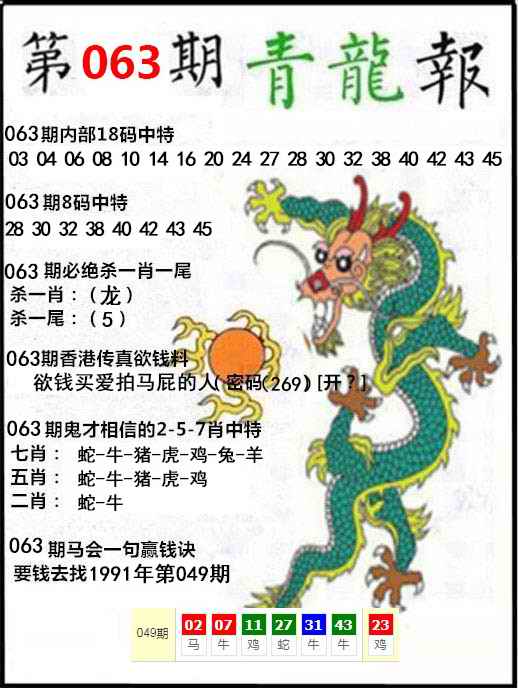 第063期青龍報
063期内部18码中特
03 04 06 08 10 14 16 20 24 27 28 30 32 38 40 42 43 45
063期8码中特
28 30 32 38 40 42 43 45
063 期必绝杀一肖一尾
杀一肖：（龙）
杀一尾：（5）
063期香港传真欲钱料
欲钱买爱拍马屁的人( 密码(269) [开？]
063期鬼才相信的2-5-7肖中特
七肖： 蛇-牛-猪-虎-鸡-兔-羊
五肖： 蛇-牛-猪-虎-鸡
二肖： 蛇-牛
063 期马会一句赢钱诀
要钱去找1991年第049期
049期 02 07 11 27 31 43 23
马 牛 鸡 蛇 牛 牛 鸡